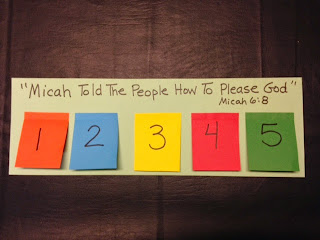 "Micah Told The People How To Please God"
Micah 6:8
1 2 3 4 5